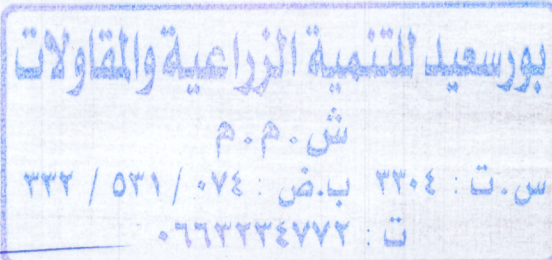 بورسعيد للتنمية الزراعية والمقاولات
ش . م . م
س . ت : ٣٣٠٤ ب.ض : ٠٧٤ / ٥٣١ / ٣٣٢
ت : ٠٦٦٣٢٣٤٧٧٢